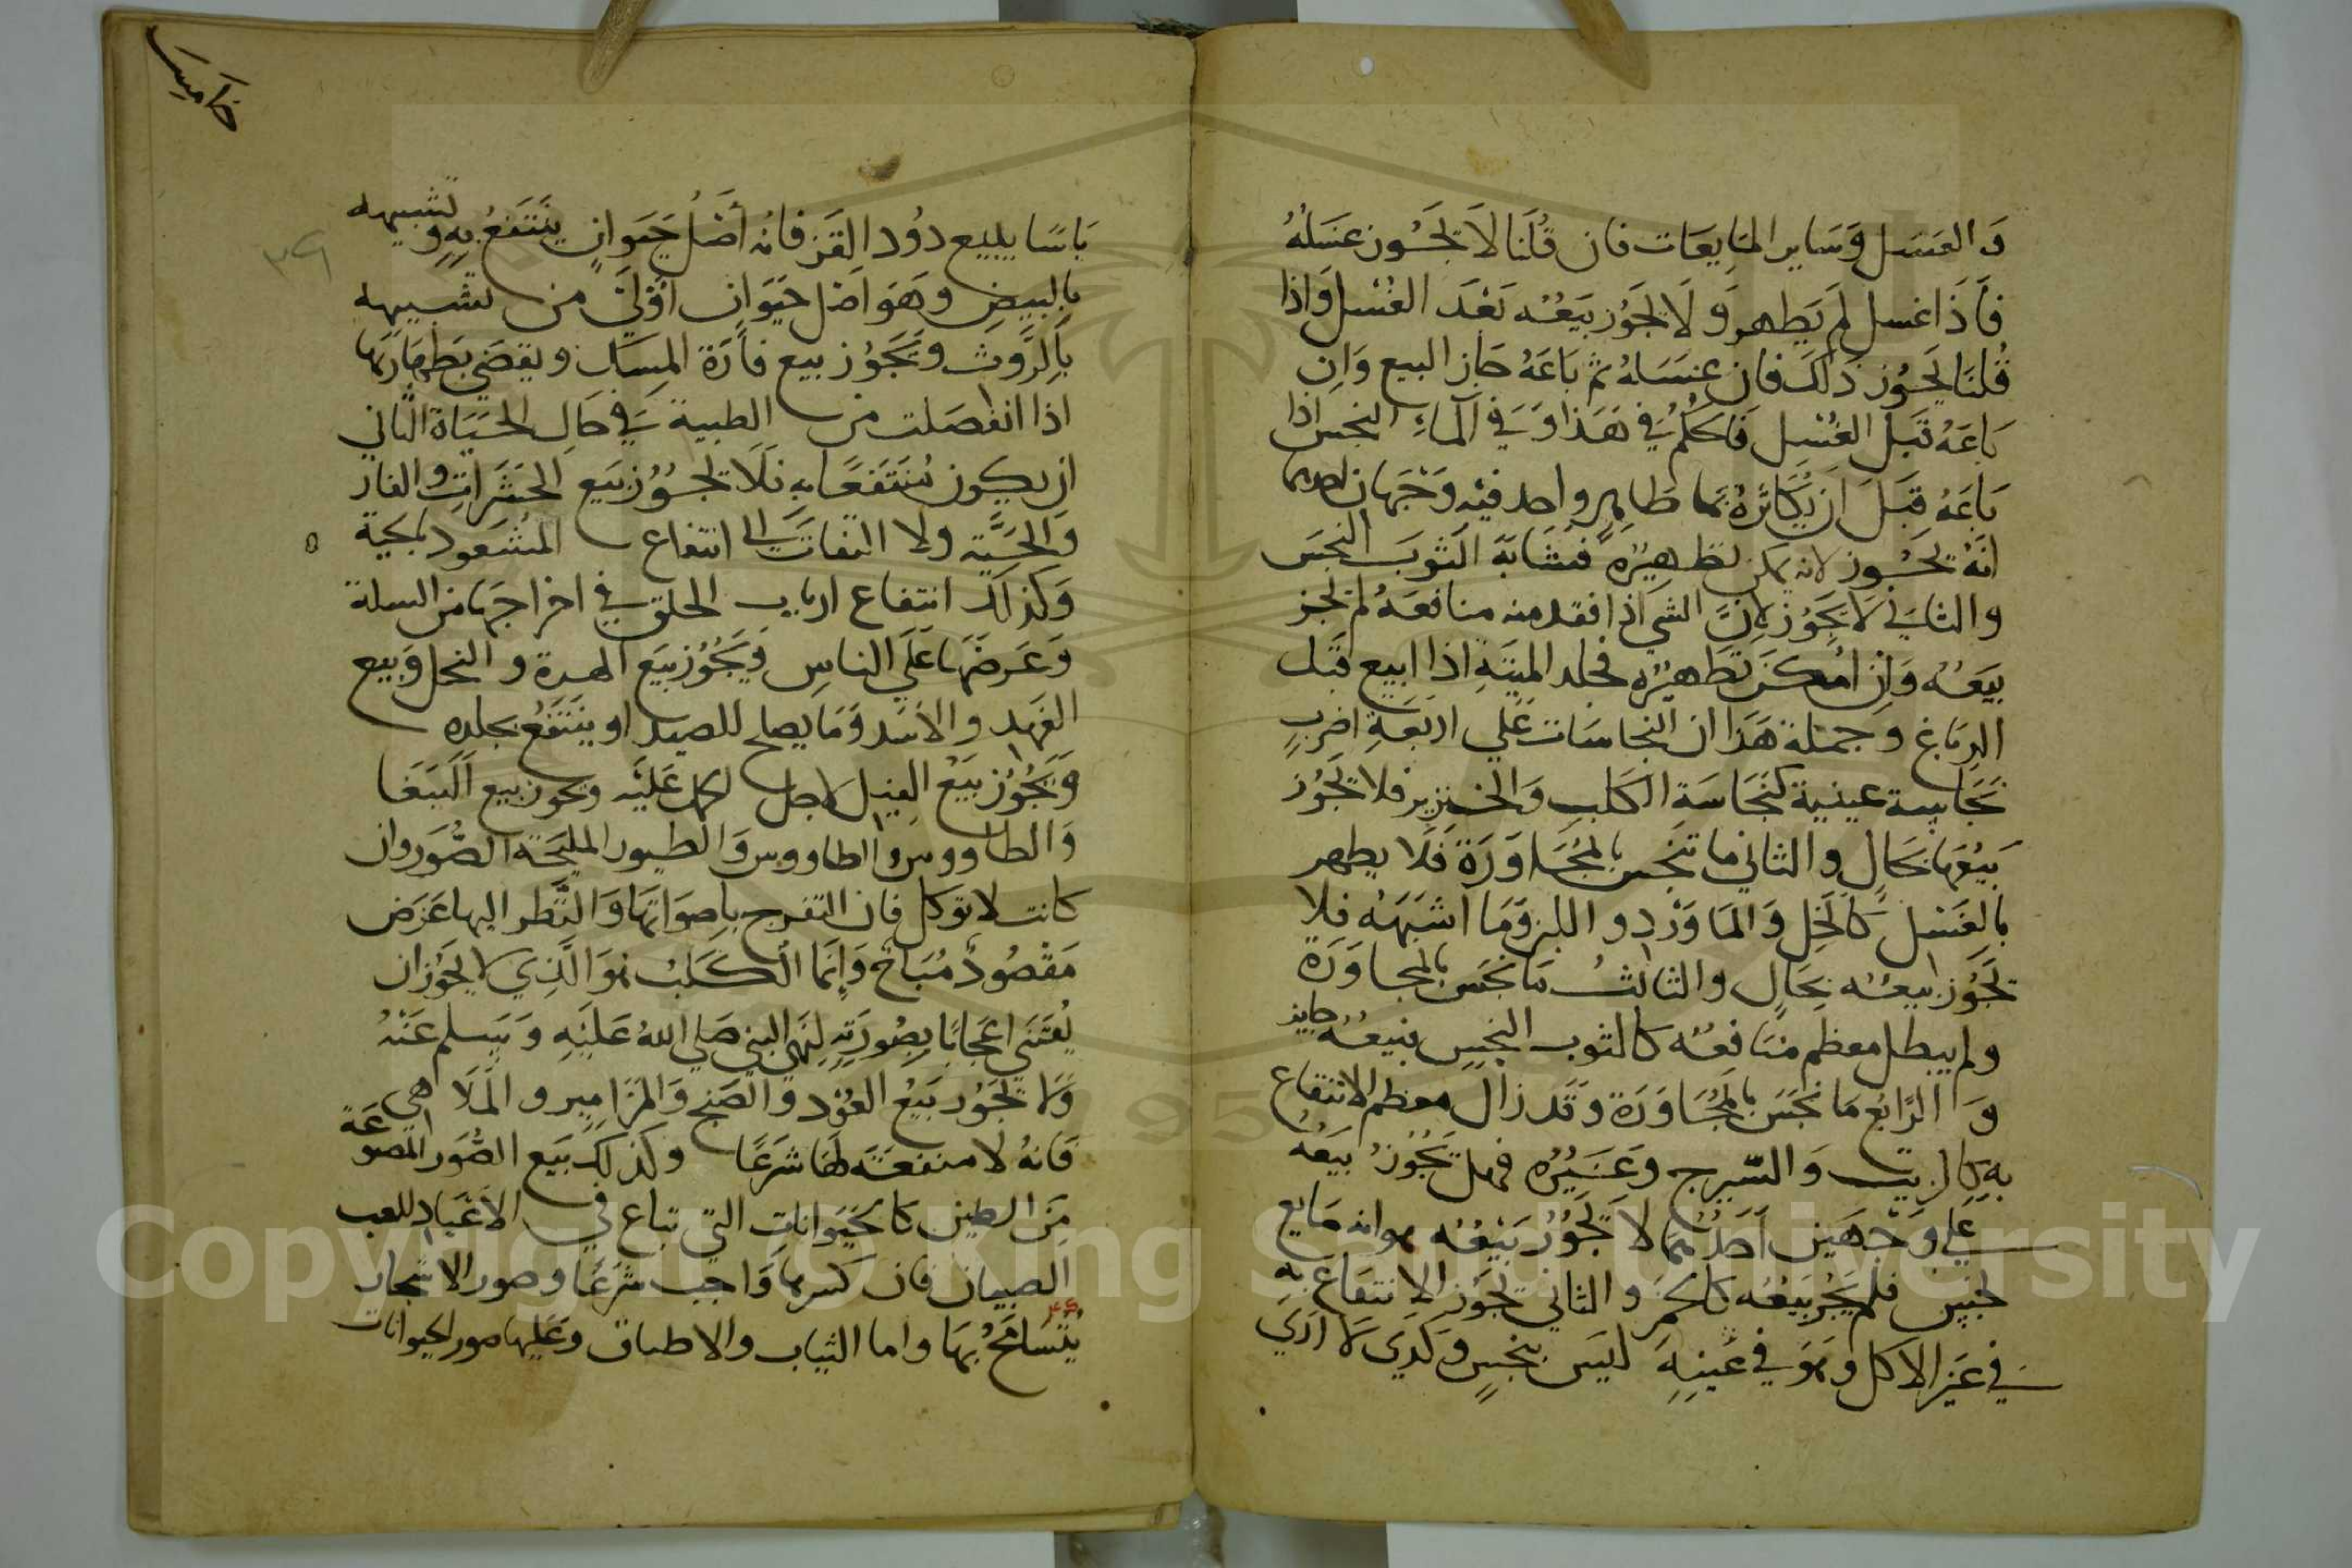 وَالعَسَل وَسَاير المَايعَات فان قُلنَا لاَ تجَُوز غسَلهُ
فَأذَا غسل لم يَطهر وَلَا يجَوُز بَيعُه بَعْدَ الغُسْل وَاذا
قُلنَا يَجُوز ذَلكَ فان غسَلهُ ثم بَاعَهُ جَاز البيع وَان
بَاعَهُ قبَل الغُسْل فَاحكمُ في هَذا وَفي المآءِ النجسِ اذا
بَاعَهُ قبَلَ ان يُكَاثرهُ بمَا طَاهِرٍ واحد فيْه وَجْهَان احدهما
انهُ يجَُوز لانه يمكن تطهيُرُه فشَابَهَ الثوبَ النجسَ
والثانَي لَا يَجُوز لانَّ الشي اذا فقد منه منافعَهُ لم تجز
بيَعُه وَان امُكنَ تَطهيُره فجلد الميتَةِ اذا ابيع قبَل
الدبَاغ وجمَلة هَذا ان النجَاسَات عَلي اربَعَةِ اضربٍ
نجَاسة عينية كنَجَاسَةِ الكَلبِ وَالخنزير فلا تجَُوز
بَيْعهَا بحَالٍ والثاني ما تنجس بالمجَُاوَرَة فَلَا يطهر
بالغَسْل كَالخلِ وَالمَاوَرْد واللبن وَمَا اشبَهَه فلا
تجَُوز بيعُه بحَالٍ والثالثُ مَا نجسَ بالمجاوَرَة
ولم يبطل معظم منَافعُه كالثوب النجسِ فبيعُهُ جايز
وَالرَّابع مَا نجسَ بالمجَُاوَرَة وَقَد زال معظم الانتفاع
بهِ كالزيت وَالسَّيرج وَغيَرُه فهل يَجُوزُ بَيعُهُ
عَلي وَجْهَين اَحَدُهُمَا لاَ تَجُوزُ بَيْعُه هو انه مَايع
نجس فلم يَجُز بَيعُه كالخَمر والثاني يَجُوز الانتفَاع بهِ
في غَير الاكل وهوَ في عَينِهِ ليَسَ بنجسٍ وكَذي لا اَرَي
بَاسًا ببيع دوُد القَز فانهُ أصْلُ حَيَوانٍ ينَتَفعُ بهِ وتشبيهه
بالبيضِ وهَوَ اصل حَيَوان اوُلَي من تشبيهه
بالرَّوث ويَجَوُز بيع فأرَة المِسَك ويقضي بَطهَارَتهَا
اذا انفصَلت من الظبية في حَالِ الحَيَاة الثاني
ان يكون مُنتَفعًا بهِ فَلَا تجَُوُز بَيع الحَشَرَاتِ والفار
وَالحَيَّته ولا التفاتَ الى انتفاع المشَعود بالحية
وَكَذلك انتفاع ارباب الحلق في اخراجَهَا من السلة
وَعَرضَهَا عَلَي الناسِ وَيَجُوُز بيَع الهرة والنحل وَبيع
الفَهد والاسَد وَمَا يصلح للصيد او ينَتَفعُ بجلده
وَيَجُوُز بيَعُ الفيل لاجل الحمل عَليْه وَيجوز بيع الَبَبَغا
وَالطاووس والطاووس وَالطيور المليَحَة الصُّوَر وان
كانت لا توكل فان التفرج باصوَاتهَا وَالنَّظر اليها غرَض
مَقصُودٌ مُبَاحٌ وَإنمَا الكَلبُ هوَ الَّذِي لا يجَُوُز ان
يُقتَني اعجَابًا بصُورَتِهِ لِنَهي النبي صَلي اللهُ عَليْهِ وَسَلم عَنْهُ
وَلا تجَُوز بَيعُ العُوْد والصَنج وَالمزَامِيرِ والمَلَاهي
فَانهُ لا منفعَتَه لهَا شرَعًا وكذَلك بَيَع الصُّوَر المَصَوعَة
مَن الطين كالحيَوانات التي تباع في الاعَيَاد للعب
الصبيان فان كسرهَا وَاجب شرَعًا وصور الاشجار
يُتسَامَحُ بهَا واما الثياب والاطباق وعَليها صور الحيوانات
خامس
٣٩